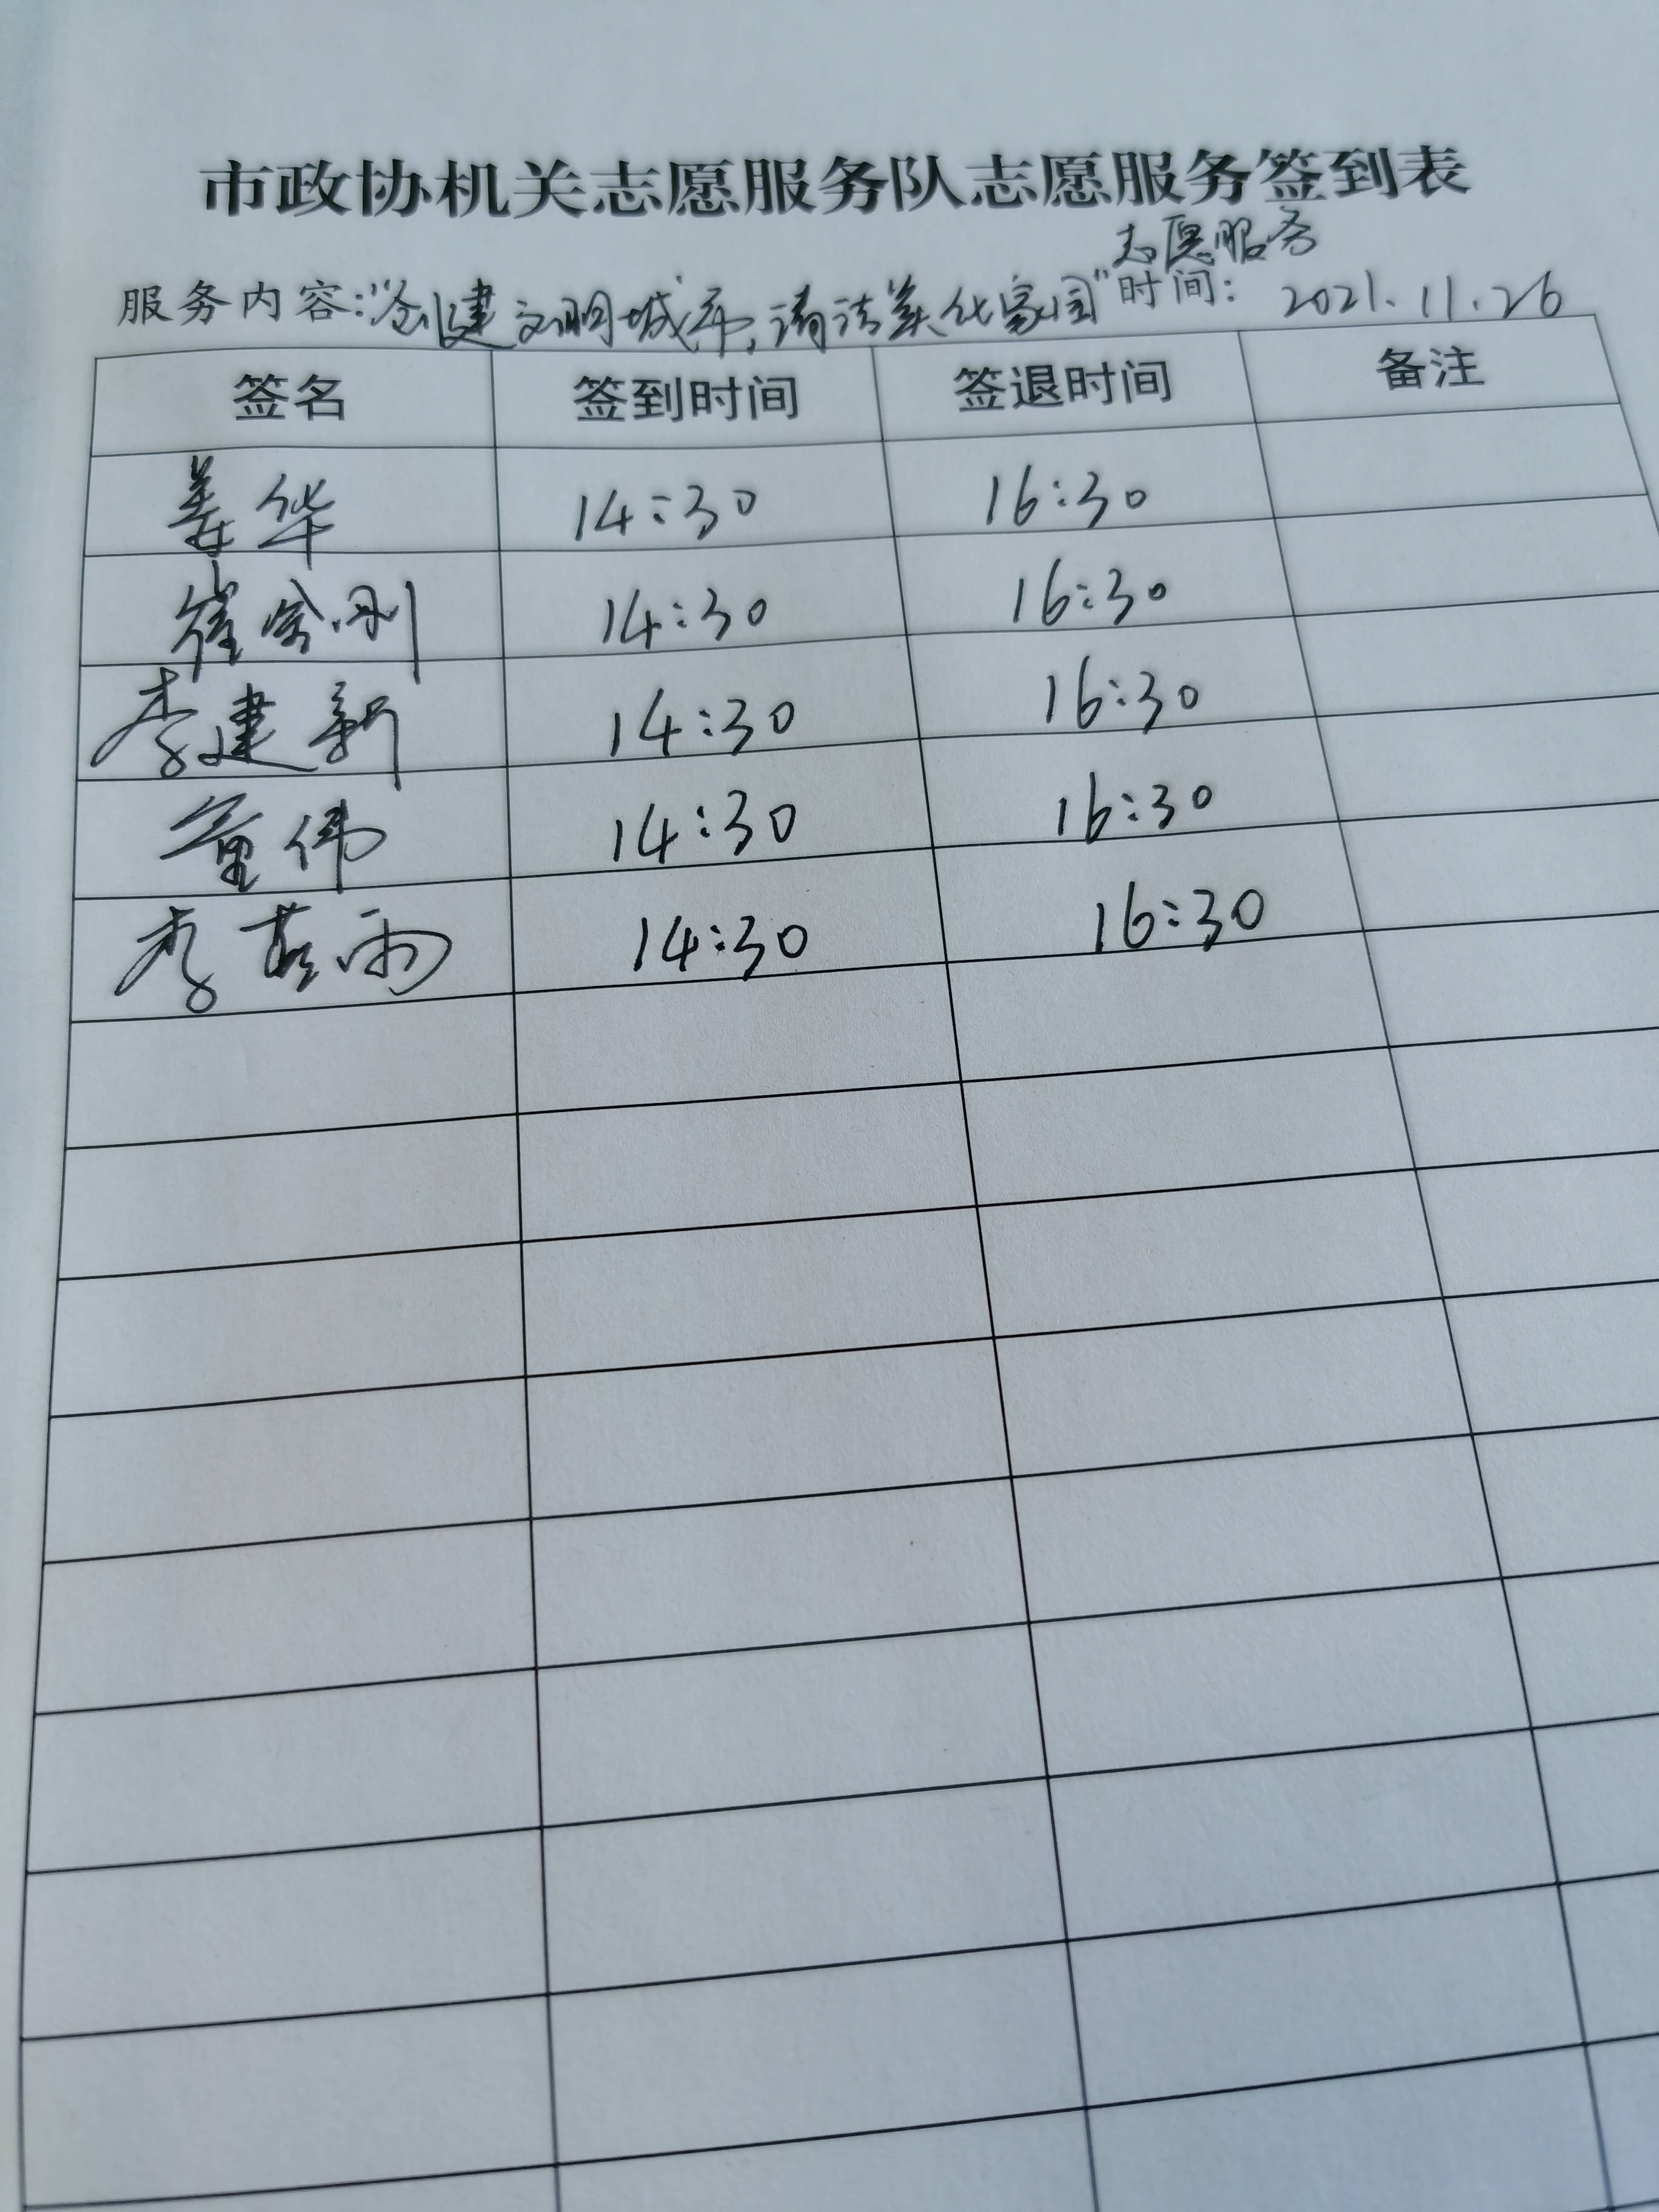 市政协机关志愿服务队志愿服务签到表
志愿服务
服务内容:"创建文明城市,清洁美化家园"时间: 2021.11.26
签名 签到时间 签退时间 备注
姜华 14:30 16:30
崔金刚 14:30 16:30
李建新 14:30 16:30
童伟 14:30 16:30
李 雨 14:30 16:30